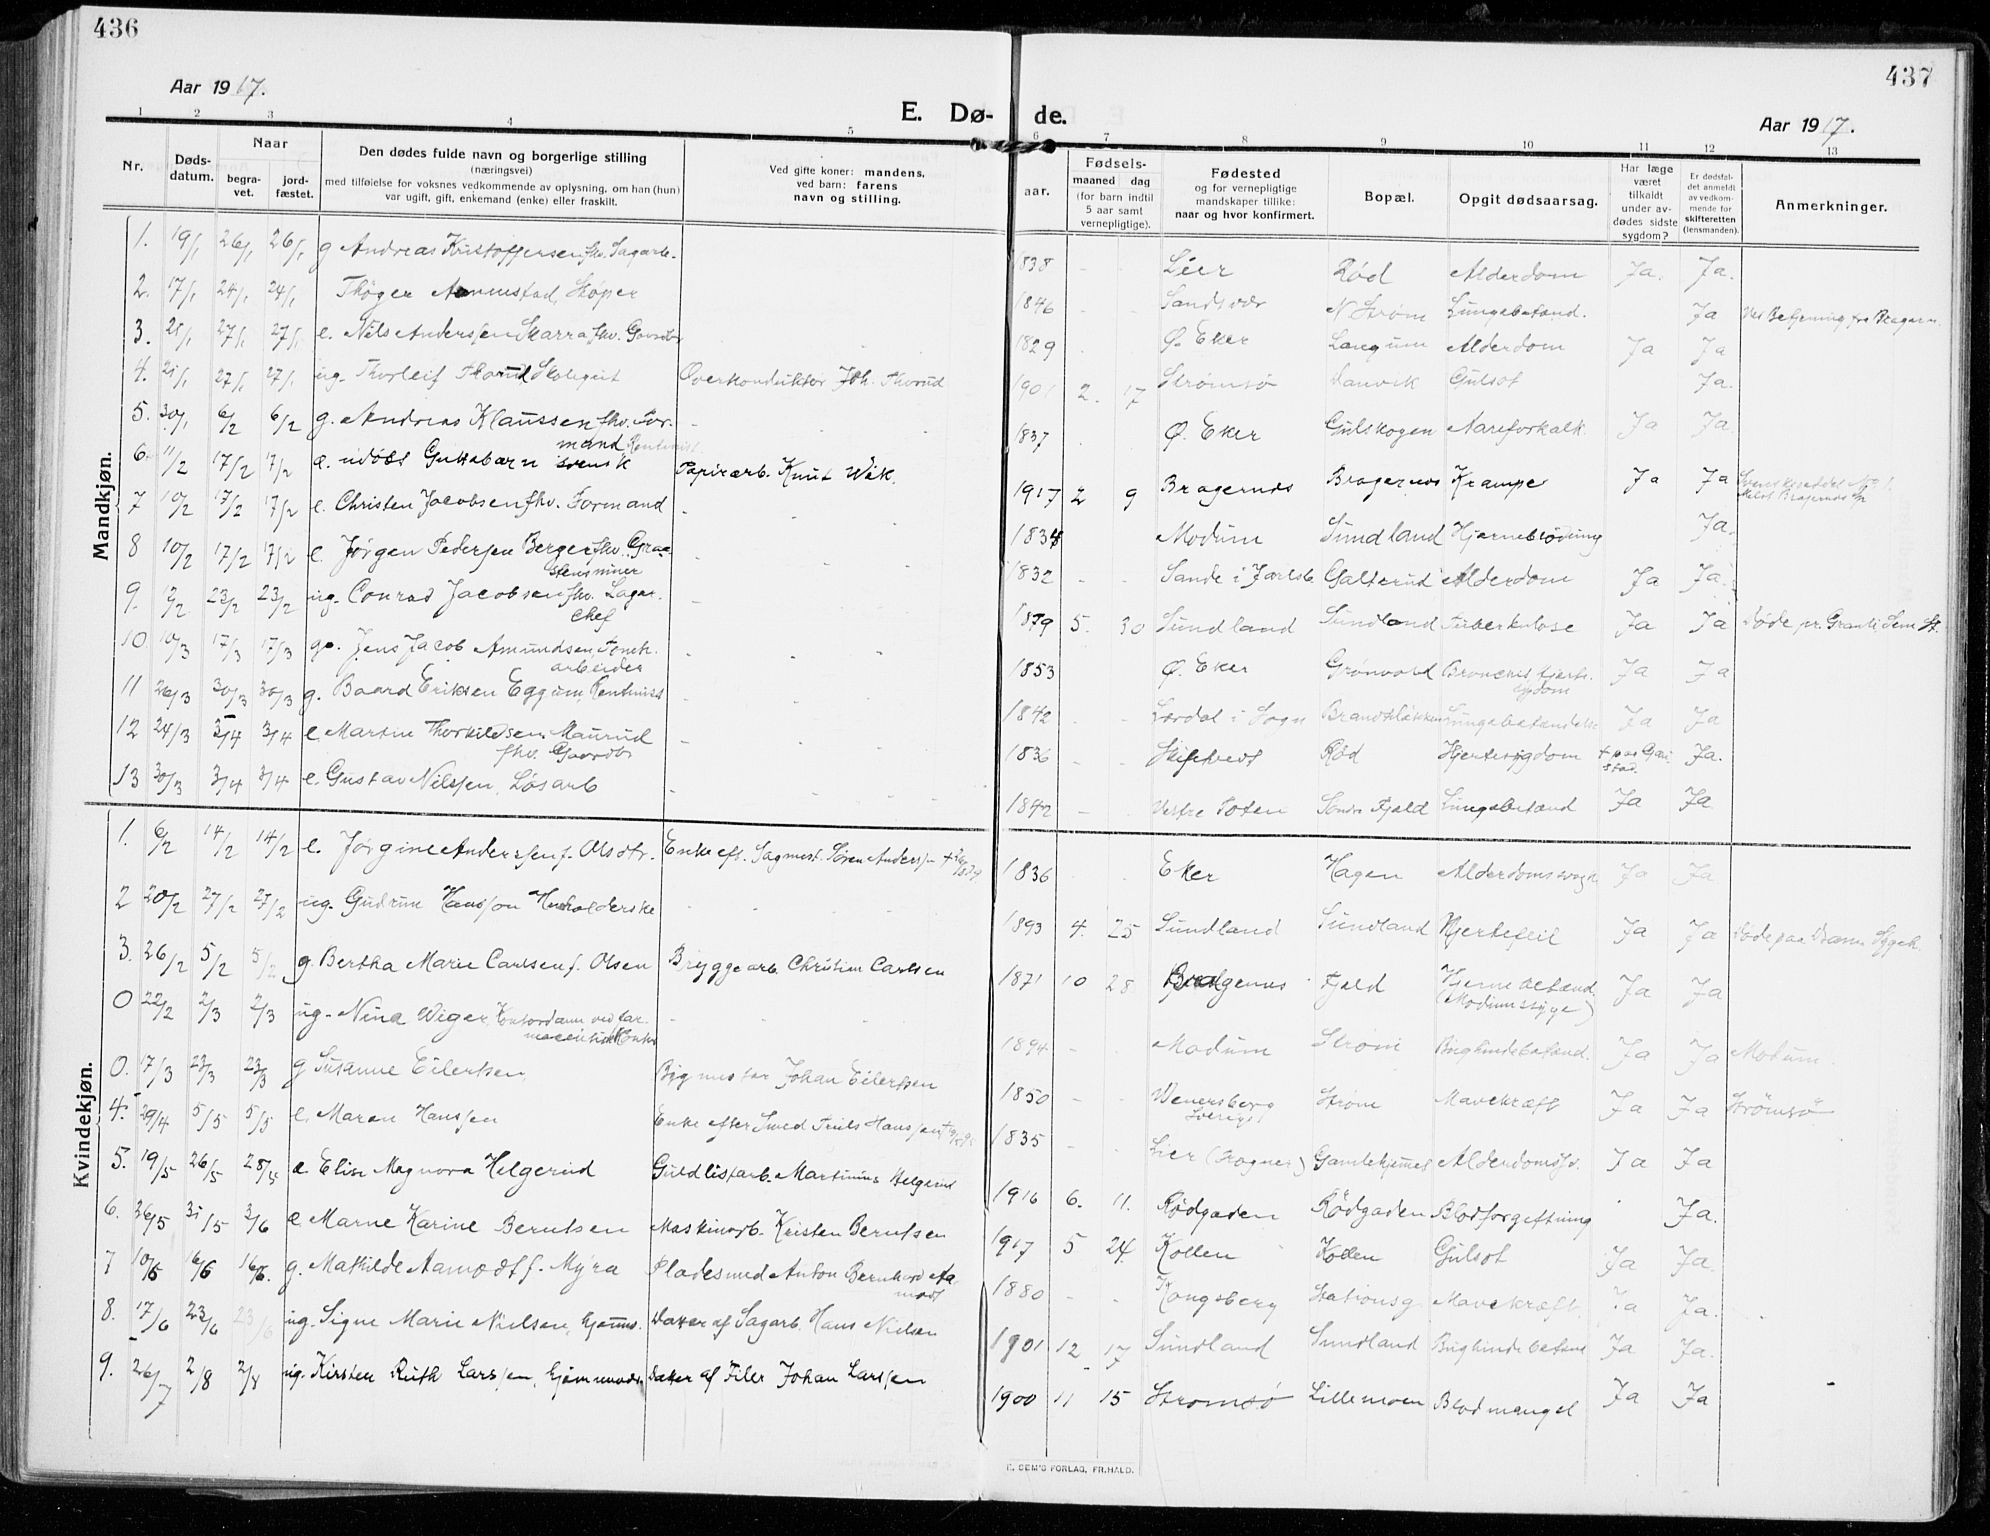 436
437
Aar 1917.
E. Dø-de.
Aar 1917.
1 2 3 4 5 6 7 8 9 10 11 12 13
Nr.
Døds-
datum.
Naar
begra-
vet.
jord-
fæstet.
Den dødes fulde navn og borgerlige stilling
(næringsvei)
med tilføielse for voksnes vedkommende av oplysning, om han (hun)
var ugift, gift, enkemand (enke) eller fraskilt.
Ved gifte koner: mandens,
ved barn: farens
navn og stilling.
aar.
Fødsels-
maaned dag
(for barn indtil
5 aar samt
vernepligtige).
Fødested
og for vernepligtige
mandskaper tillike:
naar og hvor konfirmert.
Bopæl.
Opgit dødsaarsag.
Har læge
været
tilkaldt
under av-
dødes sidste
sygdom?
Er dødsfal-
det anmeldt
av vedkom-
mende for
skifteretten
(lensmanden).
Anmerkninger.
Mandkjøn.
1. 19/1 26/1 26/1 g Andreas Kristoffersen fhv. Sagarb. 1838 - - Lier Rød Alderdom Ja. Ja.
2. 17/1 24/1 24/1 Thøger Skøper 1846 - - Sandsvær N Strøm Lungebetænd. Ja
3. 21/1 27/1 27/1 e. Nils Anderssen Skarra fhv. Gaardbr 1829 Ø. Eker Langum Alderdom Ja Ja
4. 21/1 27/1 27/1 ug. Thorleif Thorud Skolegut Overkonduktør Joh. Thorud 1901 2. 17 Strømsø Danvik Gulsot Ja.
5. 30/1 6/2 6/2 g. Andreas Klaussen fhv. For-
mand 1837 Ø. Eker Gulskogen Aareforkalk. Ja Ja.
6. 11/2 17/2 17/2 æ. udøbt Guttebarn svensk Papirarb. Knut Wik. 1917 2 9 Bragernes Bragernes Krampe Ja Ja
7 10/2 17/2 17/2 e. Christen Jacobsen fhv. Formand 1834 Modum Sundland Hjerneblødning Ja.
8 10/2 17/2 17/2 e. Jørgen Pedersen Berger fhv. Graa-
stensminer 1832 - - Sande i Jarlsb. Galterud Alderdom Ja Ja.
9. 23/2 23/2 ug. Conrad Jacobsen fhv. Lager-
chef 1879 5. 30 Sundland Sundland Tuberkulose Ja Ja
10 10/3 17/3 17/3 g. Jens Jacob Amundsen,
arbeider 1853 Ø. Eker Grønvold Ja Ja
11 26/3 30/3 30/3 g. Baard Eriksen Eggum, Rentenist 1842 - - Lærdal i Sogn Lungebetændelse Ja Ja
12 24/3 3/4 3/4 e. Martin Thorkildsen Maurud
fhv. Gaardbr 1836 - - Skiptvedt Rød Hjertesygdom Ja.
13 30/3 3/4 3/4 e. Gustav Nilssen, Løsarb 1842 - - Vestre Toten Søndre Fjeld Lungebetænd Ja Ja
Kvindekjøn.
1. 6/2 14/2 14/2 e. Jørgine Anderssen f. Olsdtr. Enke eft. Sagmest. Søren Anderssen 1836 Eker Hagen Alderdomssvagh. Ja Ja
2 20/2 27/2 27/2 ug. Gudrun Hanssen Husholderske 1893 4. 25 Sundland Sundland Hjertefeil Ja Ja Døde paa Dram. Sygeh.
3. 26/2 5/2 5/2 g. Bertha Marie Carlsen f. Olsen Bryggearb. Christian Carlsen 1871 10 28 Bragernes Fjeld Hjernebetænd.
Ja Ja
0 22/2 2/3 2/3 ug. Nina Wiger, Kontordame 1894 - - Modum Strøm Bughindebetænd. Ja Ja Modum.
0. 17/3 23/3 23/3 g Susanne Eilertsen Bygmester Johan Eilertsen 1850 - - Wenersberg
Sverige Strøm Mavekræft Ja Ja Strømsø
4. 29/4 5/5 5/5 e. Maren Hanssen Enke efter Smed Truls Hanssen 1835 - Lier (Frogner) Gamlehjemmet Ja Ja
5. 19/5 26/5 28/5 æ Elise Magnora Helgerud Guldlistarb. Martinius Helgerud 1916 6. 11. Rødgaden Rødgaden Blodforgiftning Ja.
6. 26/5 31/5 3/6 æ Marne Karine Berntsen Maskinarb. Kristen Berntsen 1917 5 24. Kollen Kollen Gulsot Ja Ja.
7 10/6 16/6 16/6. g. Mathilde Aamodt f. Myra Pladesmed Anton Bernhard Aa-
modt 1880 - - Kongsberg Stationsg Mavekræft Ja Ja.
8. 17/6 23/6 23/6 ug. Signe Marie Nielsen, hjemme. Datter af Sagarb. Hans Nielsen 1901 12 17 Sundland Sundland Bughindebetænd Ja Ja.
9. 26/7 2/8 2/8 ug. Kirsten Ruth Larssen, hjemmeværende Datter af Filer Johan Larssen 1900 11 15 Strømsø Lillemoen Blodmangel Ja Ja
E. SEM'S FORLAG, FR.HALD.